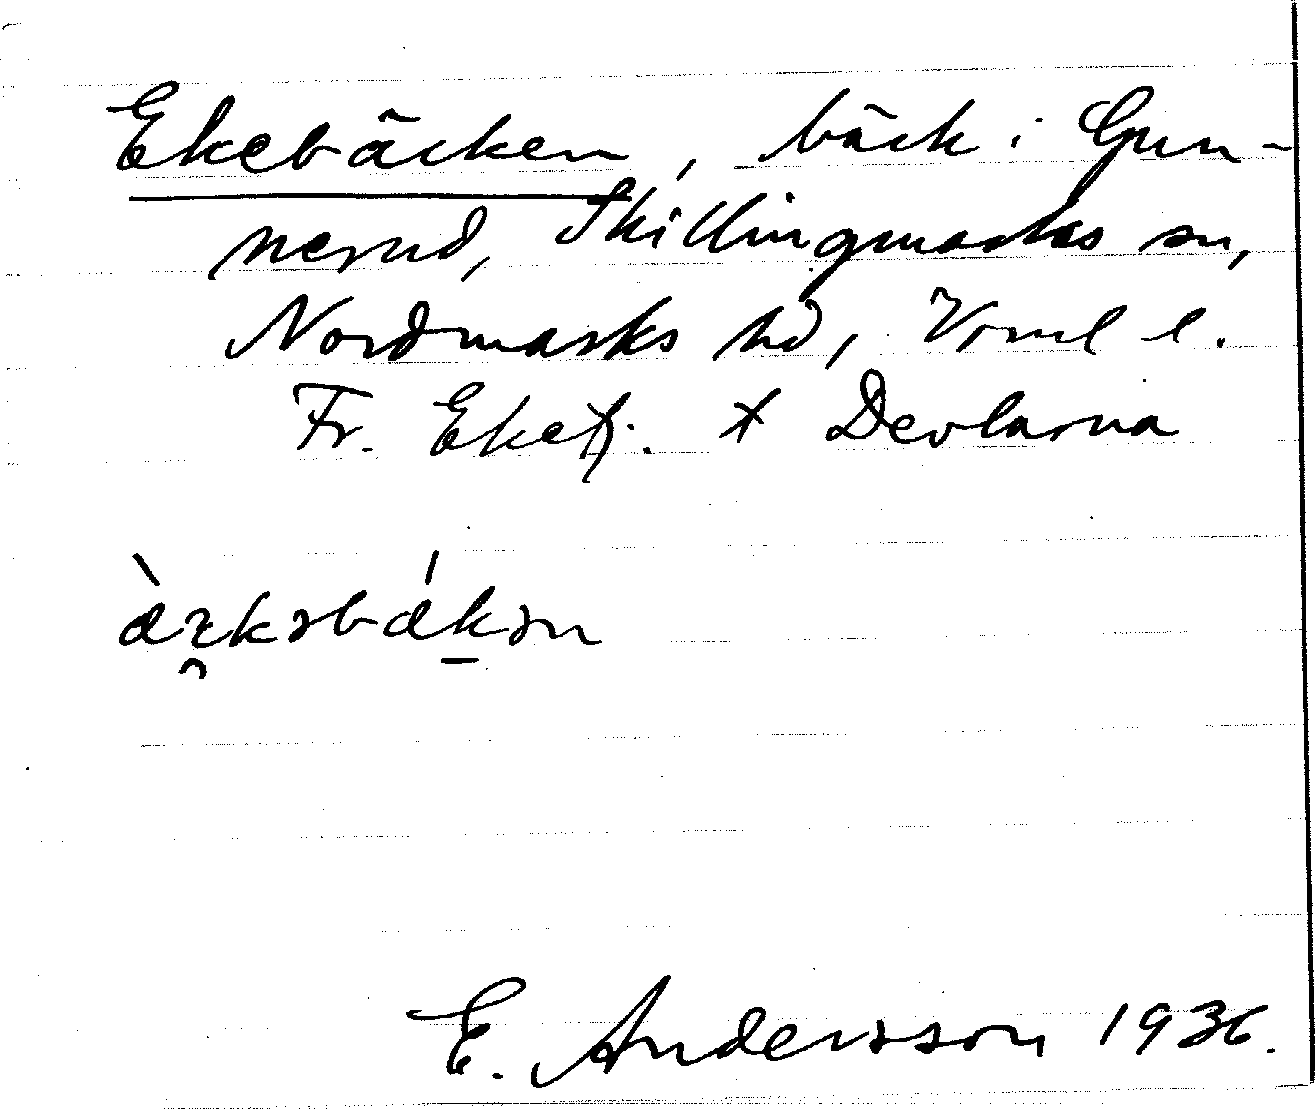 Ekebäcken, bäck i Gun-
nerud, Skillingmarks sn,
Nordmarks hd, Vrml l.
Fr. Eketj. t Devlarna
E. Andersson 1936.